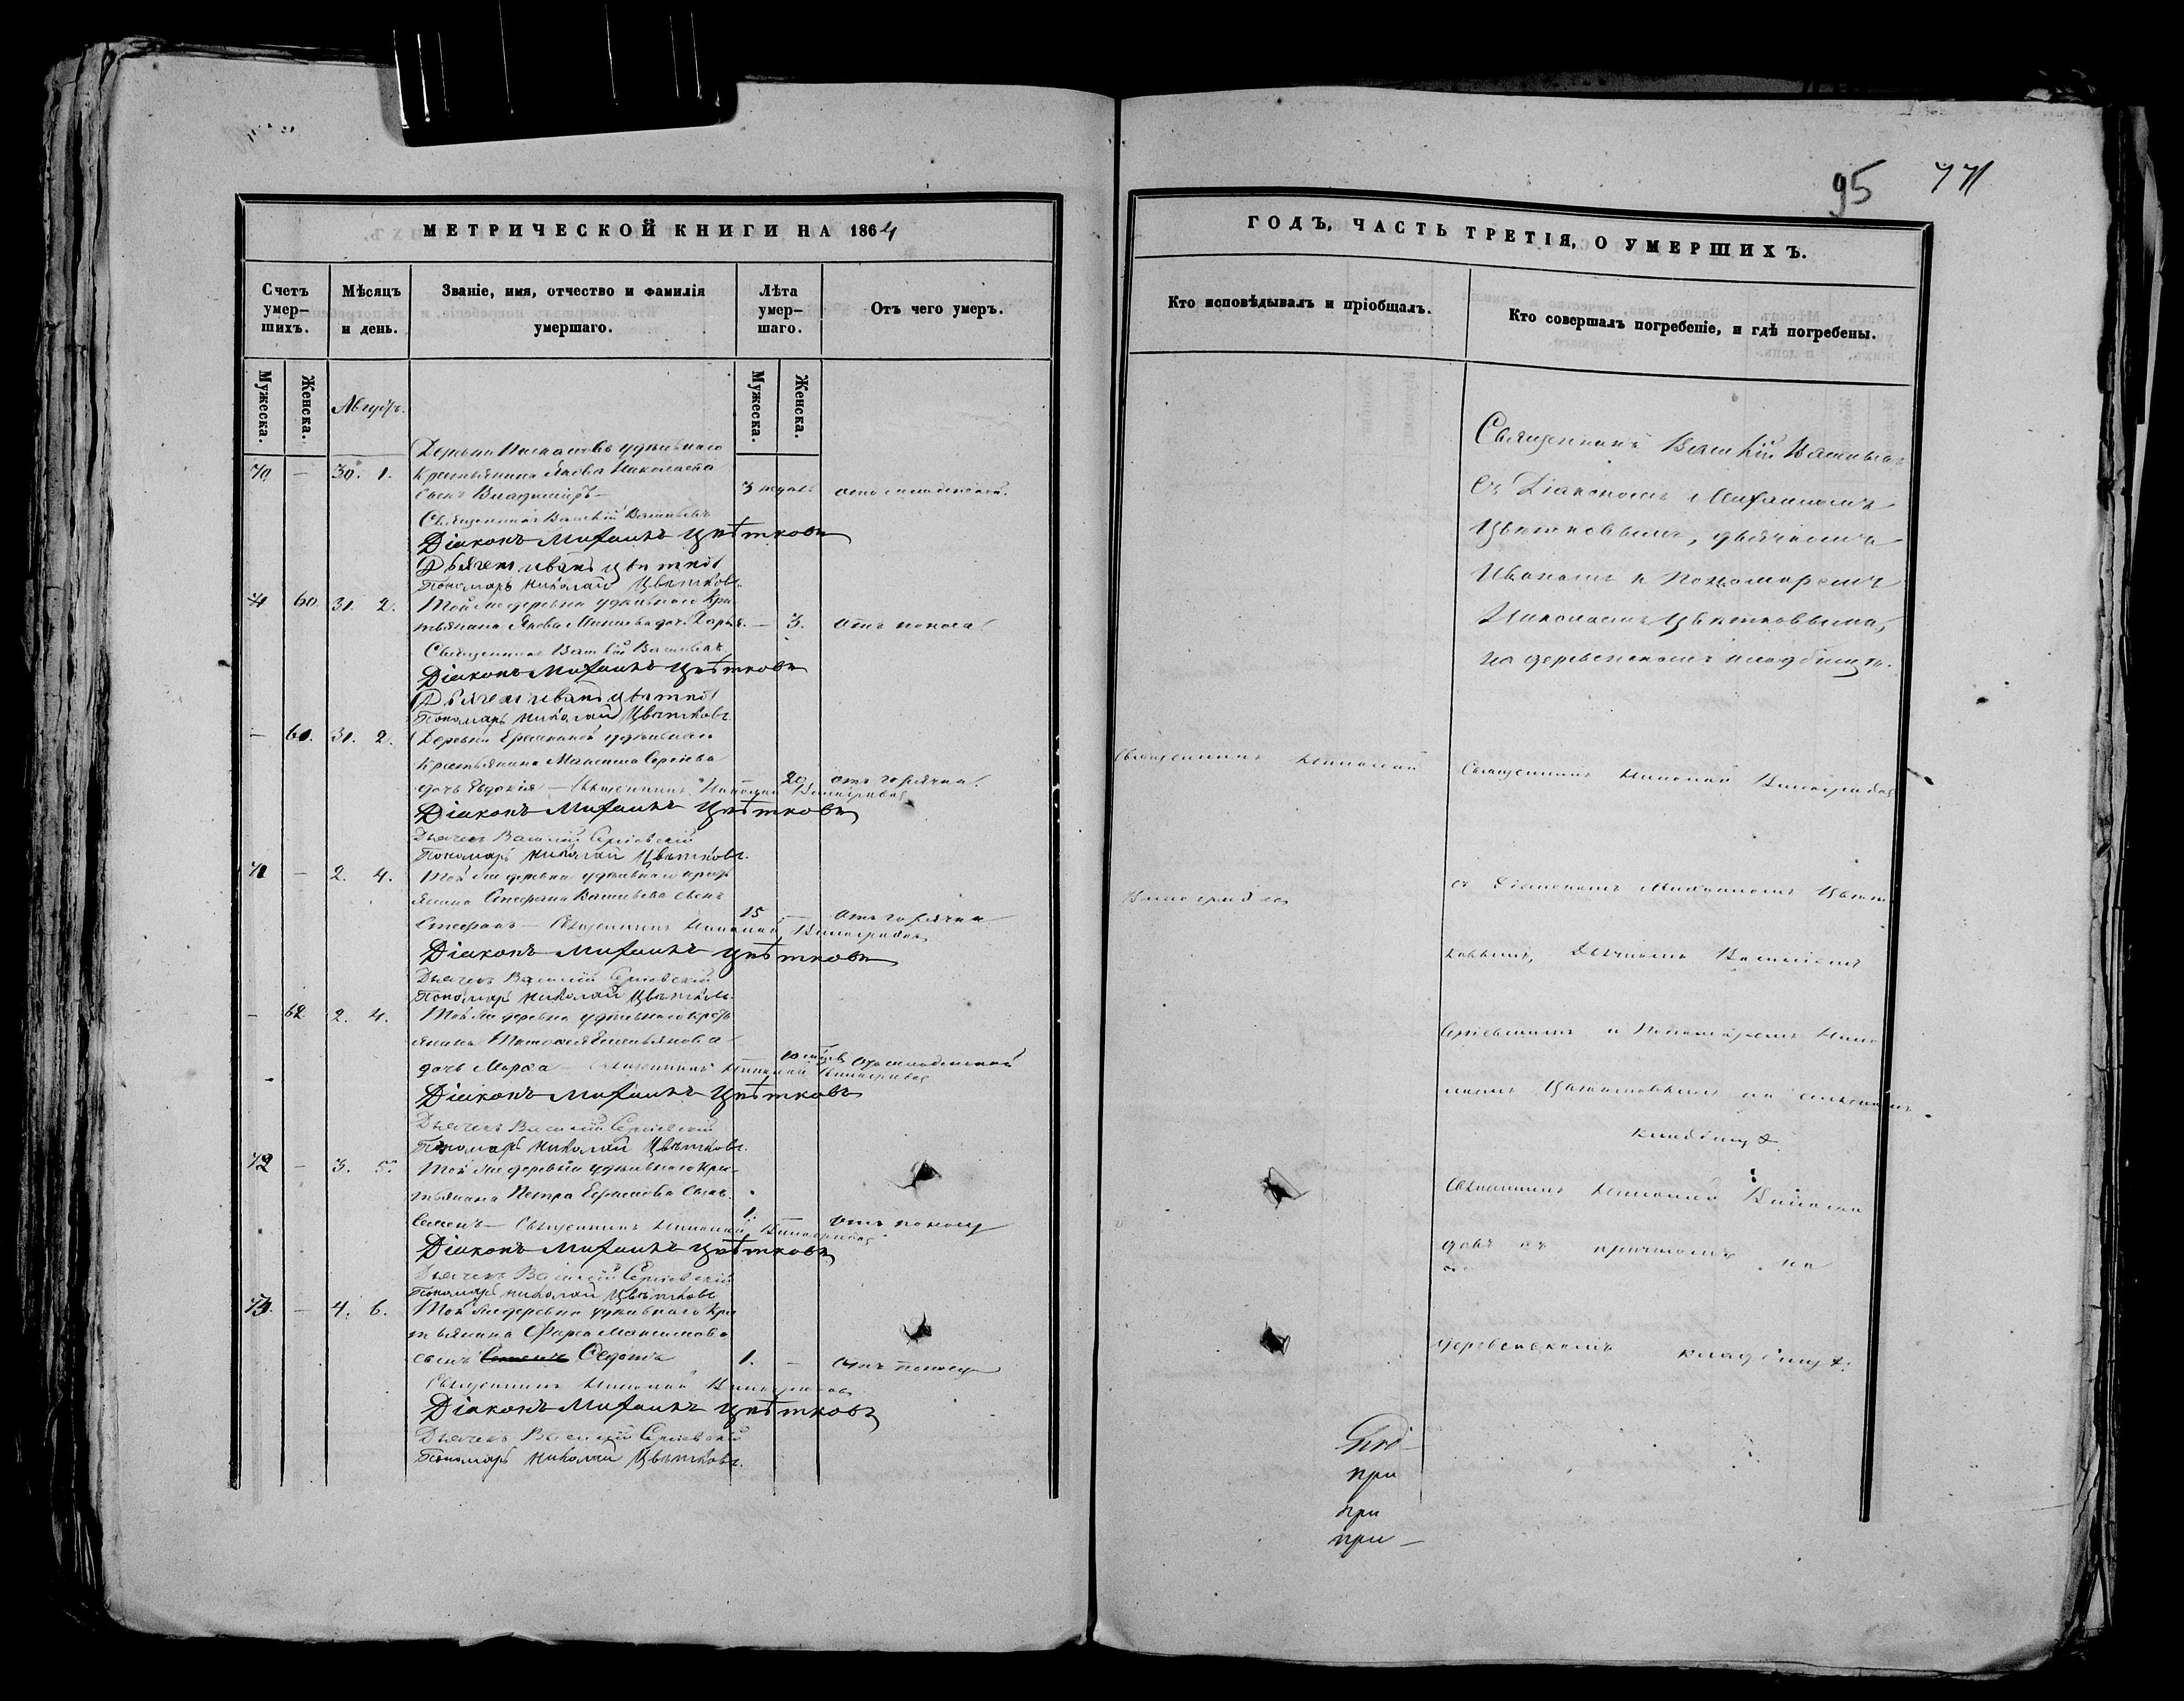 95 771
МЕТРИЧЕСКОЙ КНИГИ НА 1864
Счетъ умершихъ.
Мѣсяцъ и день.
Званіе, имя, отчество и фамилія умершаго.
Лѣта умершаго.
Отъ чего умеръ.
Мужеска.
Женска.
Мужеска.
Женска.
Августъ.
Деревни удѣльнаго
70 — 30. 1. крестьянина Якова Николаева
сынъ Владиміръ — 3 отъ младенческой.
Священникъ Василій Васильевъ
Діаконъ Михаилъ Цвѣтковъ
Дьячекъ Иванъ Цвѣтков
Пономарь Николай Цвѣтковъ.
60. 31. 2. Той же деревни удѣльнаго кре
стьянина Якова дочь Дарья. — 3. отъ поноса
Священникъ Василій Васильевъ
Діаконъ Михаилъ Цвѣтковъ
Дьячекъ Иванъ Цвѣтков
Пономарь Николай Цвѣтковъ.
— 61. 31. 2. Деревни удѣльнаго
крестьянина Максима Сергіева
дочь Евдокія — 20 отъ горячки
Священникъ Николай Виноградов
Діаконъ Михаилъ Цвѣтковъ
Дьячекъ Василій Сергіевскій
Пономарь Николай Цвѣтковъ.
71 — 2. 4. Той же деревни удѣльнаго кресть
янина Стефана Васильева сынъ
Стефанъ — 15 — отъ горячки
Священникъ Николай Виноградов
Діаконъ Михаилъ Цвѣтковъ
Дьячекъ Василій Сергіевскій
Пономарь Николай Цвѣтковъ.
— 62. 2. 4. Той же деревни удѣльнаго кресть
янина Емельянова
дочь Марѳа — отъ младенческой
Священникъ Николай Виноградов
Діаконъ Михаилъ Цвѣтковъ
Дьячекъ Василій Сергіевскій
Пономарь Николай Цвѣтковъ.
72 — 3. 5. Той же деревни удѣльнаго кре-
стьянина Петра сынъ
Семенъ — 1. — отъ поносу
Священникъ Николай Виноградов
Діаконъ Михаилъ Цвѣтковъ
Дьячекъ Василій Сергіевскій
Пономарь Николай Цвѣтковъ
73. — 4. 6. Той же деревни удѣльнаго кре
стьянина Максимова
сынъ Семенъ Ѳедотъ 1. — отъ поносу
Священникъ Николай Виноградов
Діаконъ Михаилъ Цвѣтковъ
Дьячекъ Василій Сергіевскій
Пономарь Николай Цвѣтковъ.
ГОДЪ, ЧАСТЬ ТРЕТІЯ, О УМЕРШИХЪ.
Кто исповѣдывалъ и пріобщалъ.
Кто совершалъ погребеніе, и гдѣ погребены.
Священникъ Василій Васильевъ
съ Діакономъ Михаиломъ
Цвѣтковымъ, дьячкомъ
Иваномъ и Пономаремъ
Николаемъ Цвѣтковыми,
на деревенскомъ кладбищѣ.
Священникъ Николай
Виноградов
Священникъ Николай Виноградов
съ Діакономъ Михаиломъ Цвѣт
ковымъ, Дьячкомъ Василіемъ
Сергіевскимъ и Пономаремъ Нико
лаемъ Цвѣтковымъ на
кладбищѣ
Священникъ Николай Виногра
довъ съ причтомъ на
деревенскомъ кладбищѣ.
при
при
при —